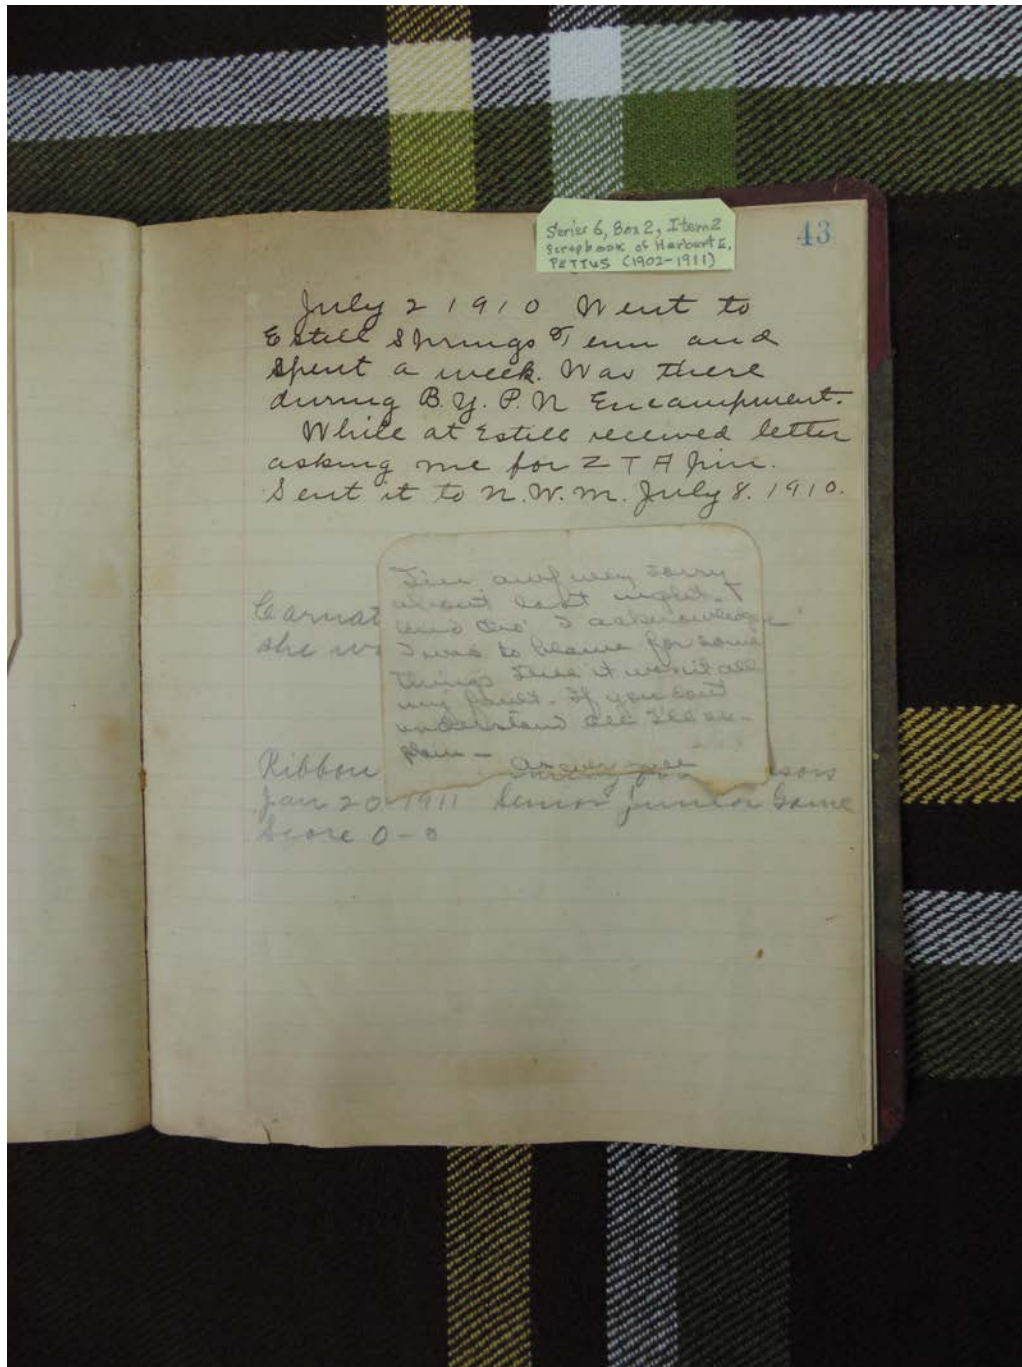 43
Series 6, Box 2, Item 2
Scrapbook of Herbert E.
PETTUS (1902-1911)
July 2 1910 Went to
Estill Springs Tenn and
spent a week. Was there
during B.Y.P.U Encampment.
While at Estill received letter
asking me for Z T A Pin.
Sent it to N.W.M. July 8. 1910.
Carnat
she wo
I'm awfully sorry
about last night.
and tho' I acknowledge
I was to blame for some
things still it wasn't all
my fault. If you don't
understand all I'll ex-
plain-
As ever
Ribbon
Jan 20 1911 Senior Junior Game
Score 0-0